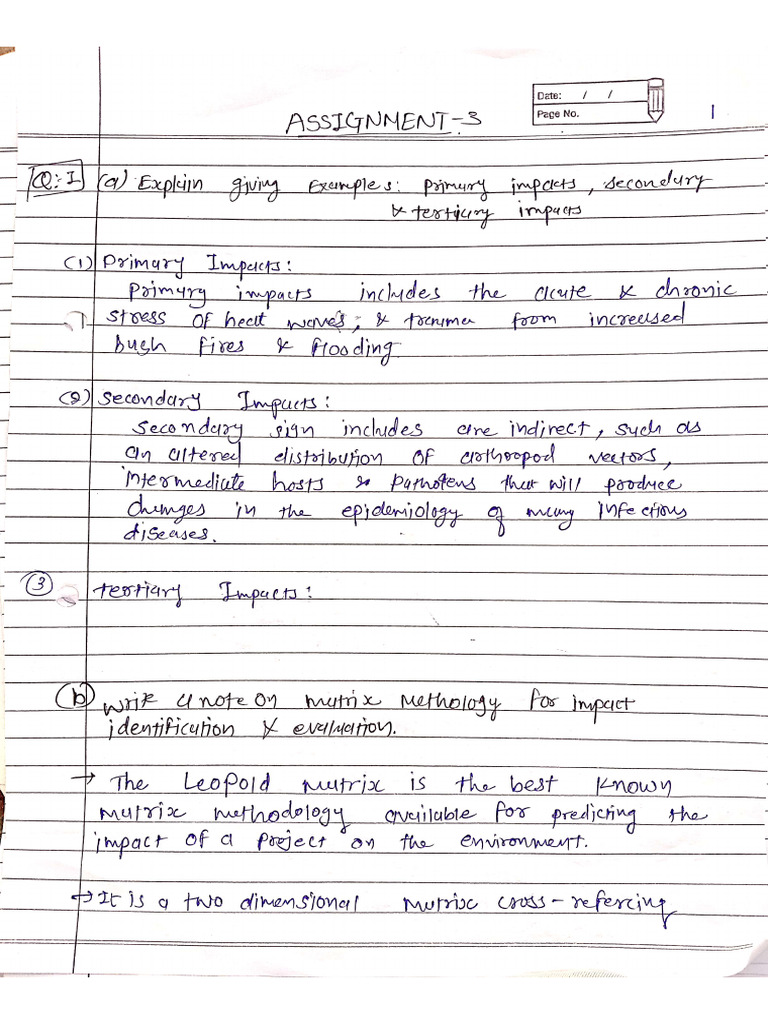 Date: / /
Page No.
1
ASSIGNMENT-3
Q:1 (a) Explain giving Examples: primary impacts, secondary
& tertiary impacts
(1) Primary Impacts:
Primary impacts includes the acute & chronic
stress of heat waves, & trauma from increased
bush fires & flooding
(2) Secondary Impacts:
Secondary sign includes are indirect, such as
an altered distribution of arthropod vectors,
intermediate hosts & pathotens that will produce
changes in the epidemiology of many infectious
diseases.
3 tertiary Impacts:
(b) Write a note on matrix methology for impact
identification & evaluation.
→ The Leopold matrix is the best known
matrix methodology available for predicting the
impact of a project on the environment.
→ It is a two dimensional matrix cross-refercing